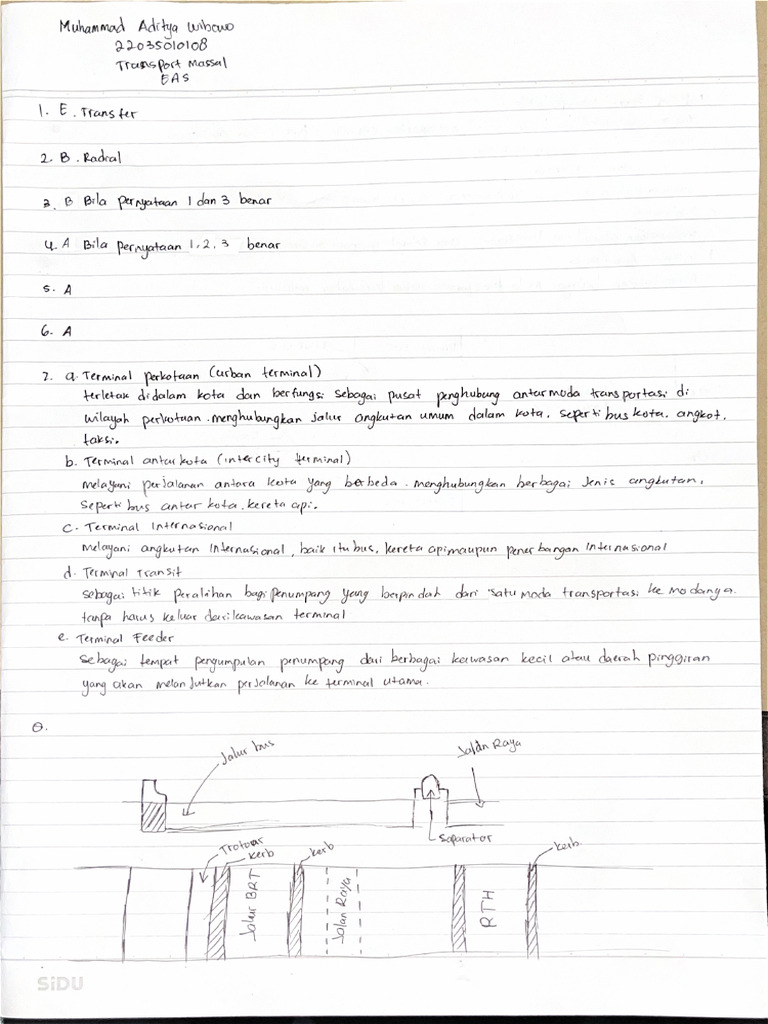 Muhammad Aditya Wibowo
22035010108
Transport Massal
EAS
1. E. Transfer
2. B. Radial
3. B Bila pernyataan 1 dan 3 benar
4. A Bila pernyataan 1, 2, 3 benar
5. A
6. A
7. a. Terminal perkotaan (urban terminal)
terletak didalam kota dan berfungsi sebagai pusat penghubung antarmoda transportasi di
wilayah perkotaan. menghubungkan jalur angkutan umum dalam kota. seperti bus kota. angkot.
taksi.
b. Terminal antar kota (intercity terminal)
melayani perjalanan antara kota yang berbeda. menghubungkan berbagai jenis angkutan,
seperti bus antar kota. kereta api.
c. Terminal Internasional
Melayani angkutan Internasional, baik itu bus, kereta api maupun penerbangan Internasional
d. Terminal Transit
sebagai titik peralihan bagi penumpang yang berpindah dari satu moda transportasi ke modanya.
tanpa harus keluar dari kawasan terminal
e. Terminal Feeder
sebagai tempat pengumpulan penumpang dari berbagai kawasan kecil atau daerah pinggiran
yang akan melanjutkan perjalanan ke terminal utama.
8.
Jalur bus
Jalan Raya
Saparator
Trotoar
kerb
kerb
kerb
Jalur BRT
Jalan Raya
RTH
SiDU